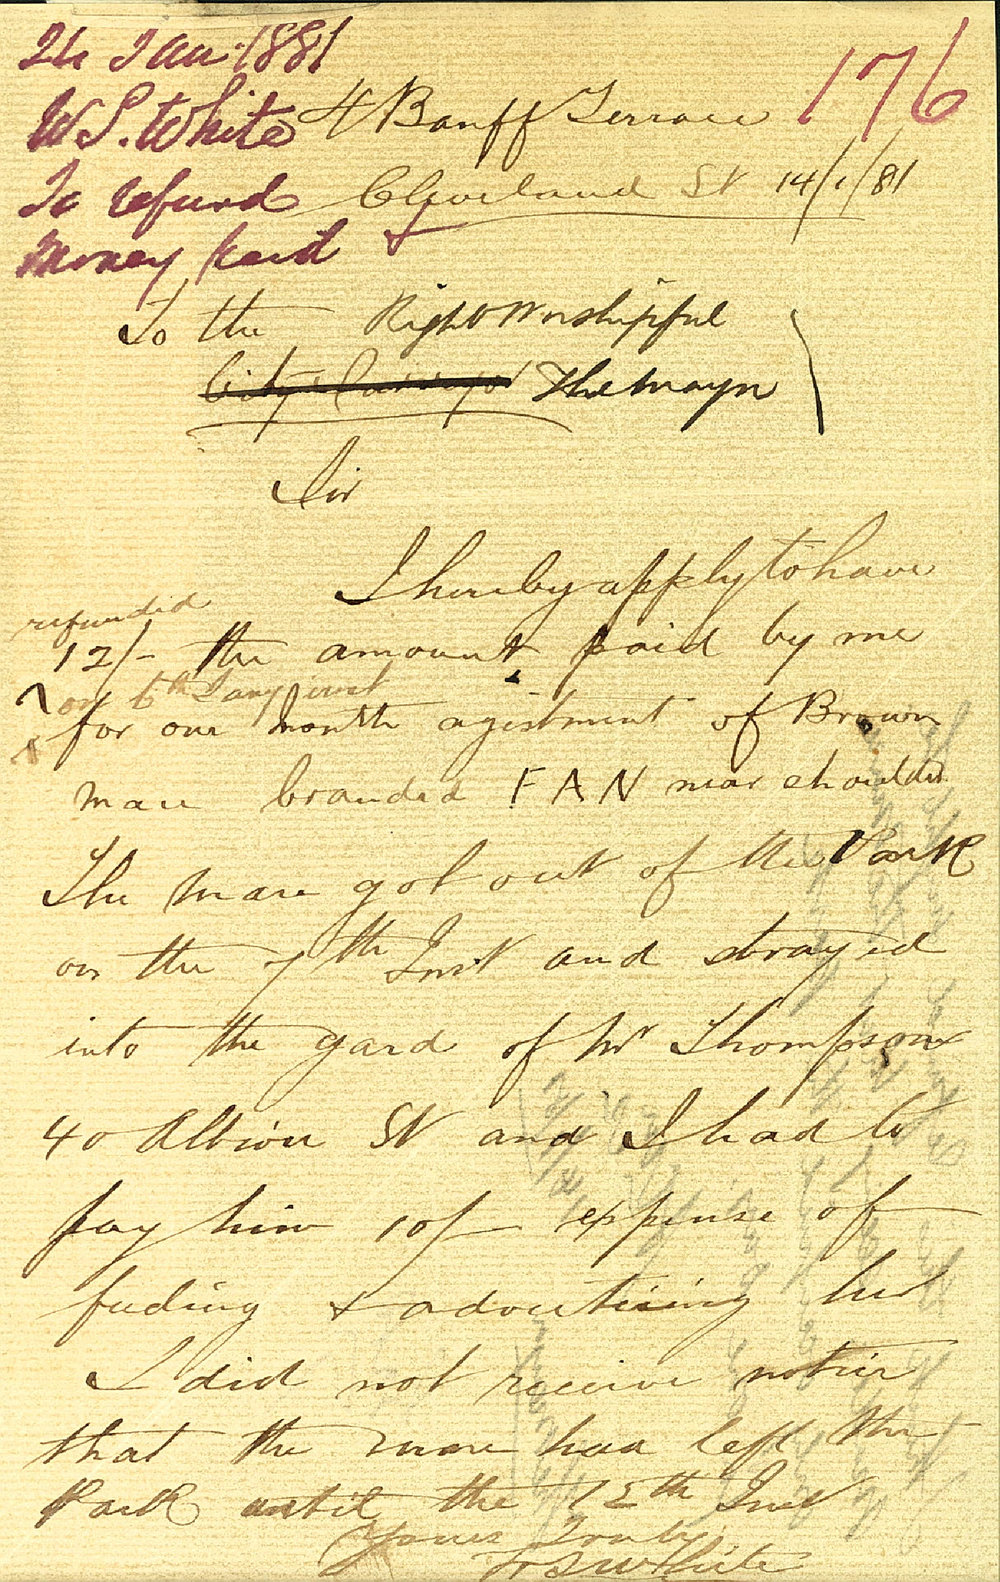 24 Jan. 1881
176
W S. White
4 Banff Terrace
To refund
Cleveland St 14/1/81
money paid
To the Right Worshipful
City Surveyor The Mayor
Sir
I hereby apply to have
refunded
12/- the amount paid by me
on 6th Jany inst
for one month agistment of Brown
mare branded FAN near shoulder
The mare got out of the Park
on the 7th Inst and strayed
into the yard of Mr Thompson
40 Albion St and I had to
pay him 10/- expense of
feeding & advertising her
I did not receive notice
that the mare had left the
Park until the 12th Inst
Yours Truly
W S White